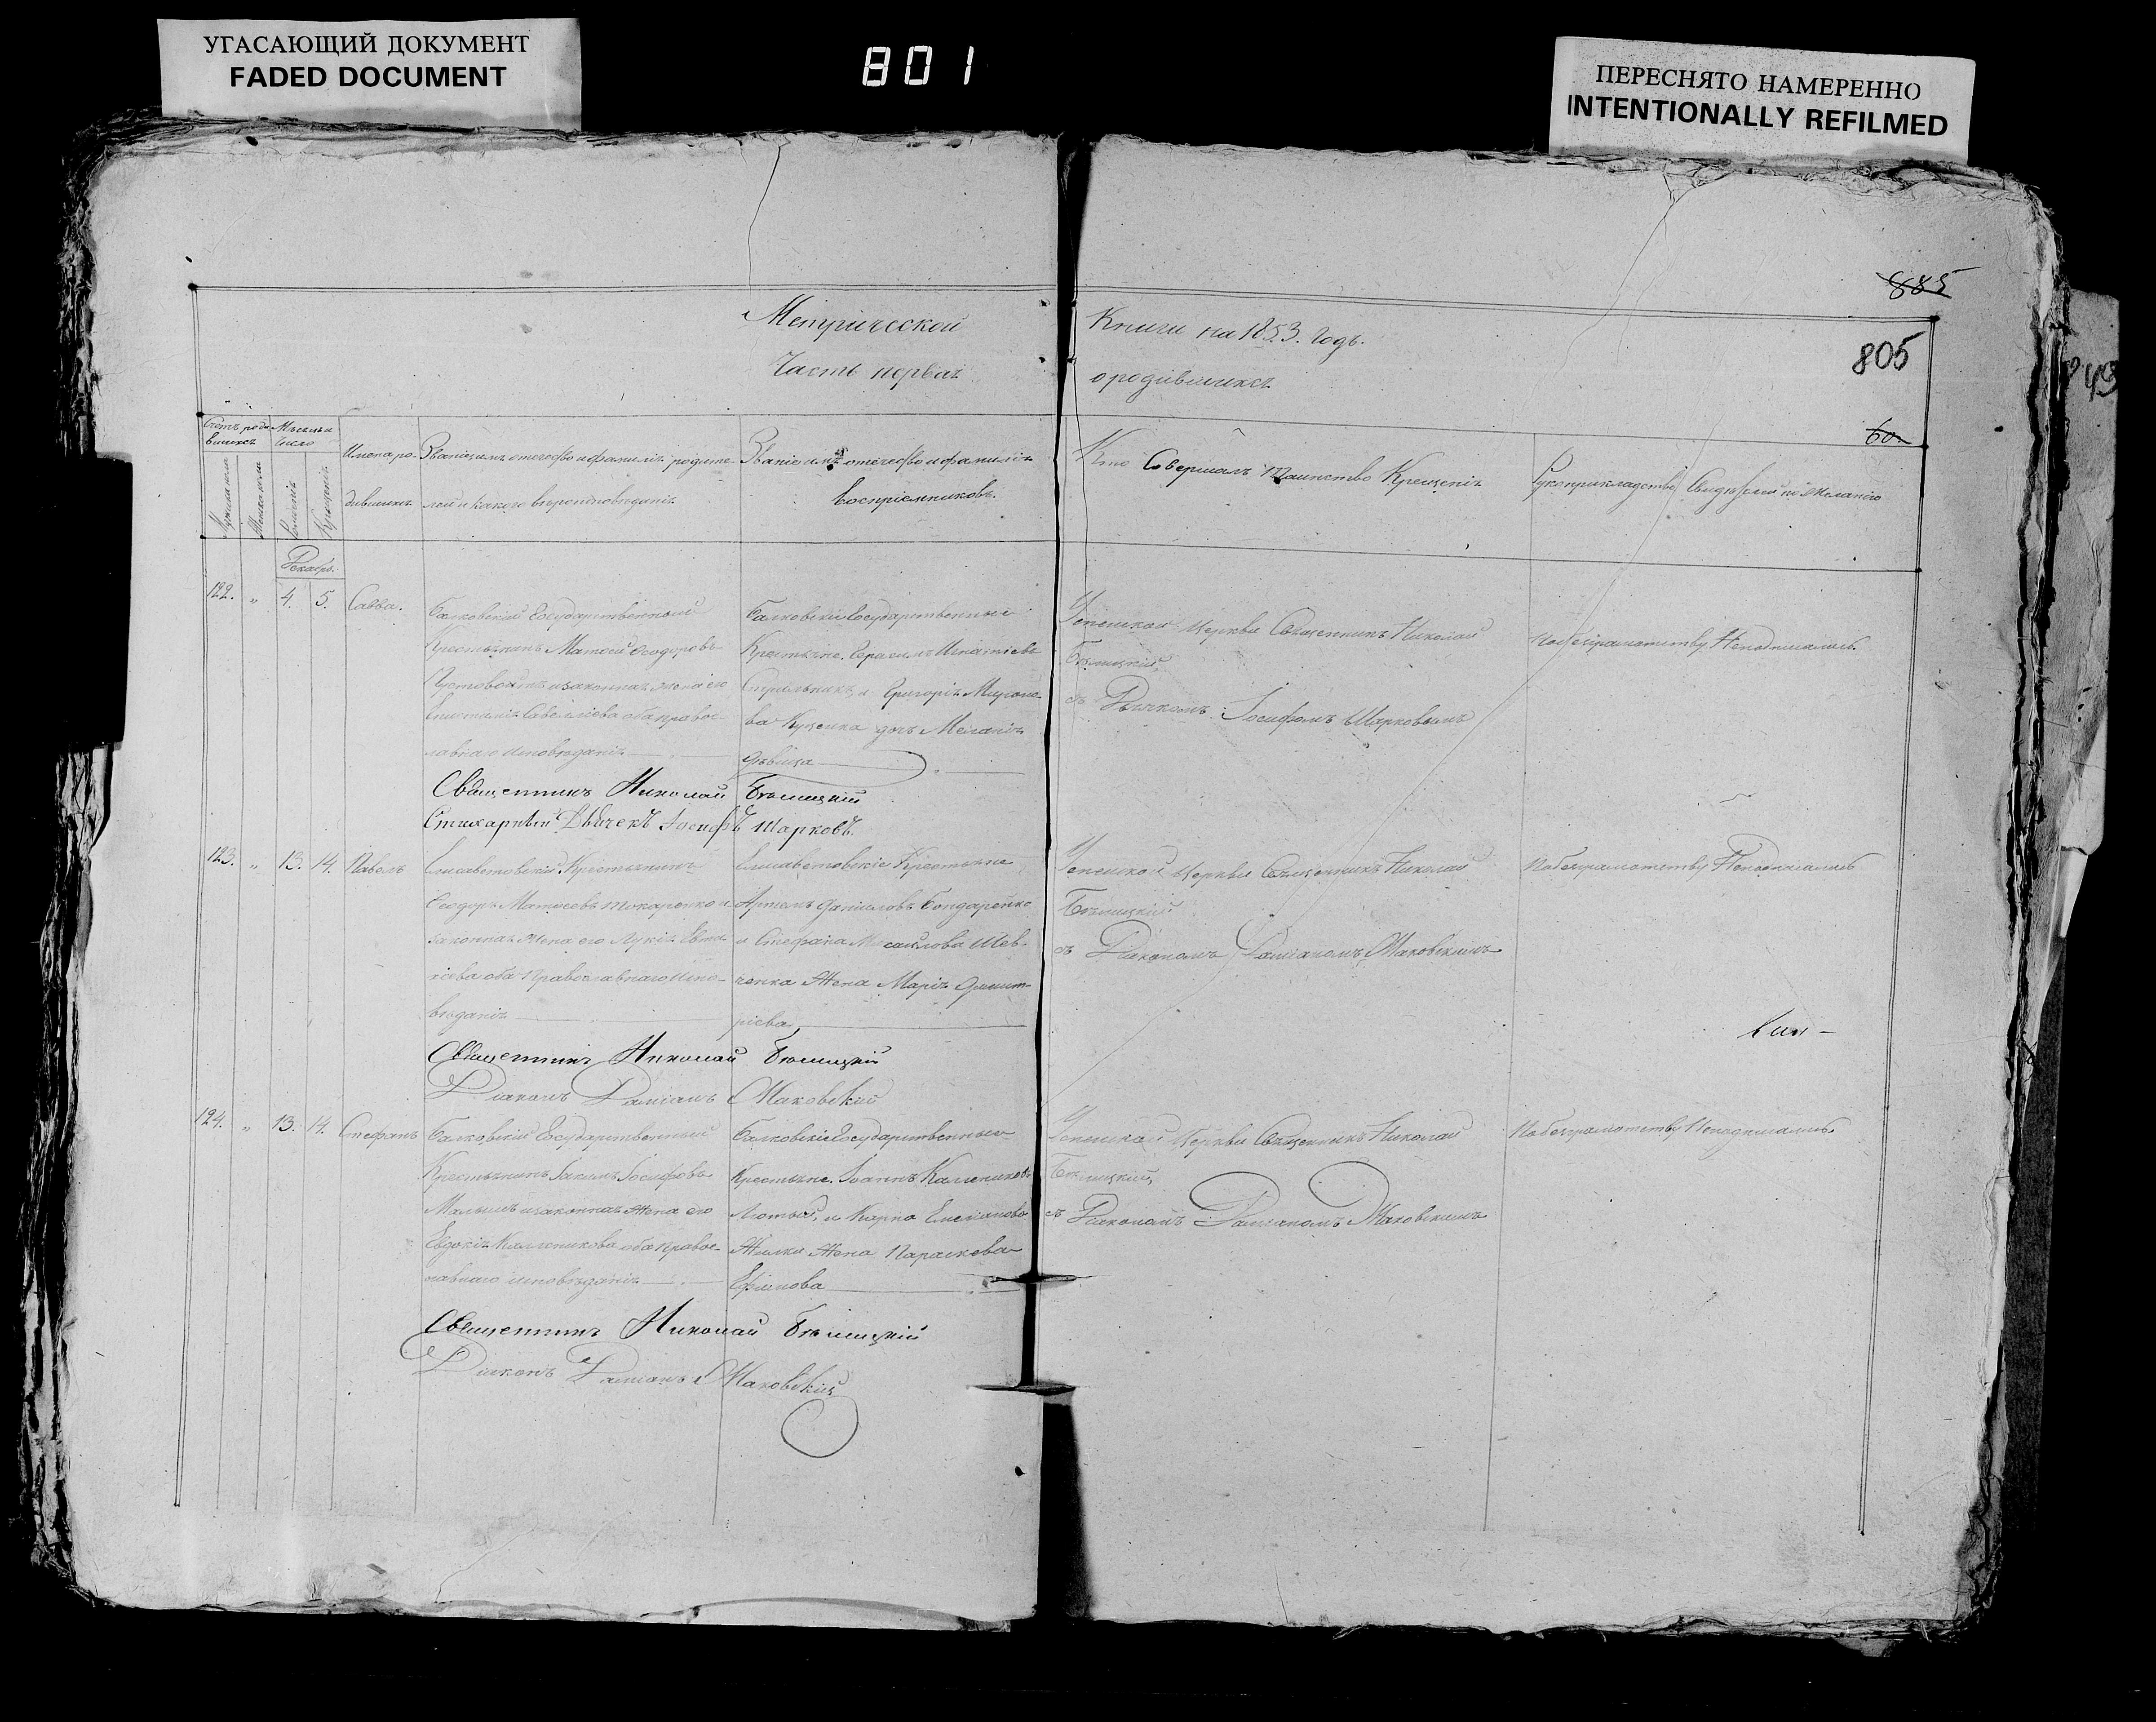 УГАСАЮЩИЙ ДОКУМЕНТ
FADED DOCUMENT
801
ПЕРЕСНЯТО НАМЕРЕННО
INTENTIONALLY REFILMED
885
805
60
Метрической
Часть первая
Книги на 1853. Годъ.
о родившихся
Счетъ роди-
вшихся
Мѣсяцъ и
число
Мужеска пола
Женска пола
Рожденія
Крещенія
Имена ро-
дившихся
Званіе имя отчество и фамилія родите-
лей и какого вѣроисповѣданія
Званіе имя отчество и фамилія
воспріемниковъ.
Кто Совершалъ Таинство Крещенія
Рукоприкладство Свидѣтелей по желанію
Декабрь.
122. " 4. 5. Савва.
Балковскій Государственный
Крестьянинъ Матѳей Ѳеодоровъ
и законная жена его
Савелиева оба правос-
лавнаго исповѣданія
Балковскіе Государственные
Крестьяне. Герасимъ Игнатіевъ
и Григорія Мирono-
ва Куценка дочь Меланія
дѣвица
Успенской Церкви Священникъ Николай
Бѣлицкій
съ Дьячкомъ Іосифомъ Шарковымъ
По безграмотству Неподписались
Священникъ Николай Бѣлицкій
Стихарный Дьячекъ Іосифъ Шарковъ.
123. " 13. 14. Павелъ
Елисаветовскій Крестьянинъ
Ѳеодоръ Матѳеевъ Токаренко и
законная жена его Лукія Евта-
ѳіева оба Православнаго Испо-
вѣданія
Елисаветовскіе Крестьяне
Артемъ Даниловъ Бондаренко
и Стефана Михайлова Шев-
ченка Жена Марія Димит-
ріева
Успенской Церкви Священникъ Николай
Бѣлицкій
съ Діакономъ Даміаномъ Маковскимъ
По безграмотству Неподписались
Священникъ Николай Бѣлицкій
Діаконъ Даміанъ Маковскій
124. " 13. 14. Стефанъ
Балковскій Государственный
Крестьянинъ Іакимъ Іосифовъ
Малышъ и законная Жена его
Евдокія Каленикова оба правос-
лавнаго исповѣданія
Балковскіе Государственные
Крестьяне. Іоаннъ Калениковъ
Лютый, и Карпа Емелианова
Жилки Жена Параскева
Ефимова
Успенской Церкви Священникъ Николай
Бѣлицкій
съ Діакономъ Даміаномъ Маковскимъ
По безграмотству Неподписались
Священникъ Николай Бѣлицкій
Діаконъ Даміанъ Маковскій